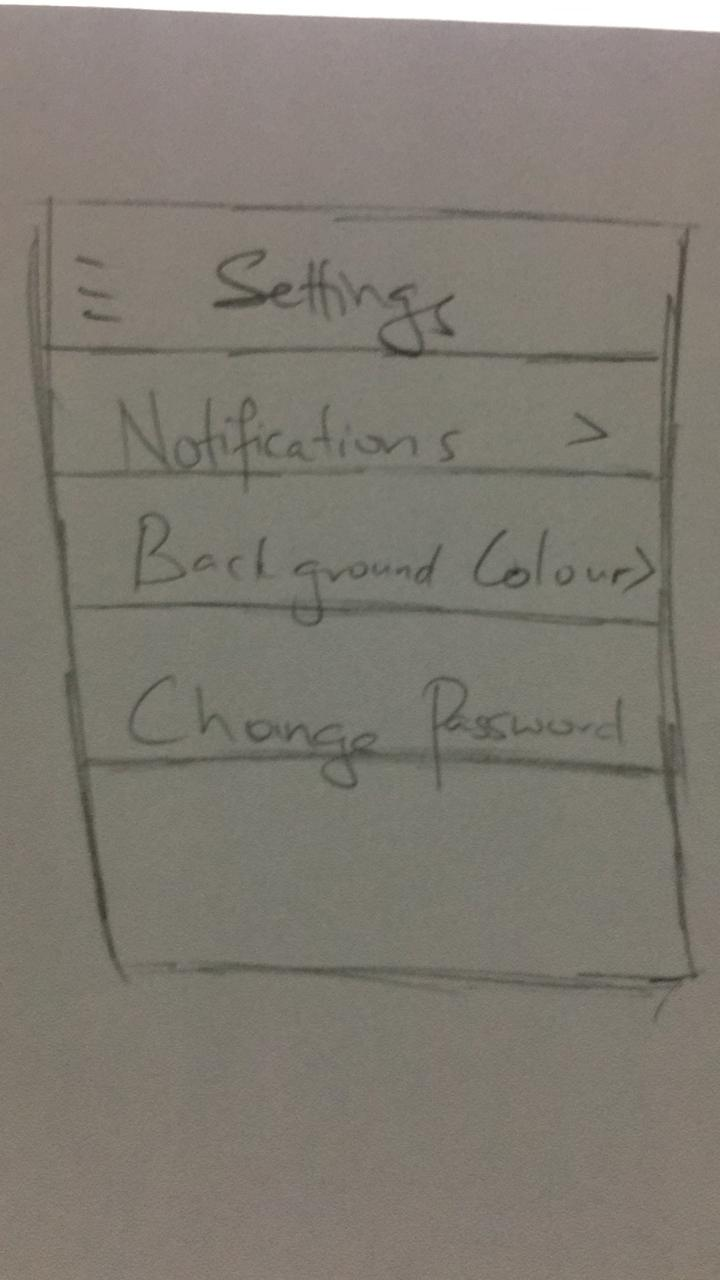 Settings
Notifications >
Background Colour >
Change Password